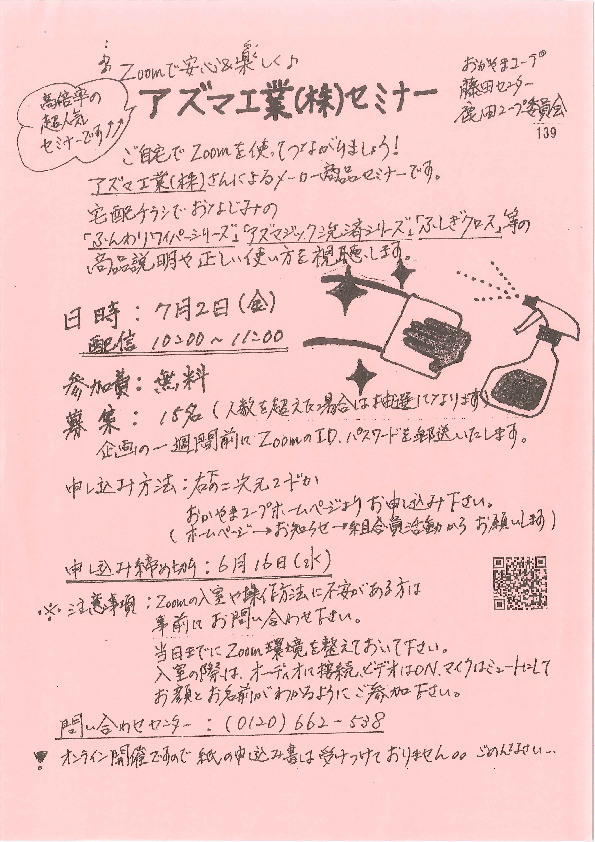 Zoomで安心&楽しく♪
アズマ工業(株)セミナー
高倍率の
超人気
セミナーです↑↑
おかやまコープ
藤田センター
鹿田コープ委員会
139
ご自宅でZoomを使ってつながりましょう!
アズマ工業(株)さんによるメーカー商品セミナーです。
宅配チラシでおなじみの
「ふんわりワイパーシリーズ」「アズマジック洗済シリーズ」「ふしぎクロス」等の
商品説明や正しい使い方を視聴します。
日時:7月2日(金)
配信 10:00~11:00
参加費:無料
募集:15名(人数を超えた場合はお抽選になります)
企画の一週間前にZoomのID、パスワードを郵送いたします。
申し込み方法:右の二次元コードか
おかやまコープホームページよりお申込み下さい。
(ホームページ→お知らせ→組合員活動からお願いします)
申し込み締め切り:6月16日(水)
※注意事項:Zoomの入室や操作方法に不安がある方は
事前にお問い合わせ下さい。
当日までにZoom環境を整えておいて下さい。
入室の際は、オーディオに接続、ビデオはON、マイクはミュートにして
お顔とお名前がわかるようにご参加下さい。
問い合わせセンター:(0120)662-538
オンライン開催ですので紙の申し込み書は受けつけておりません。。ごめんなさい…